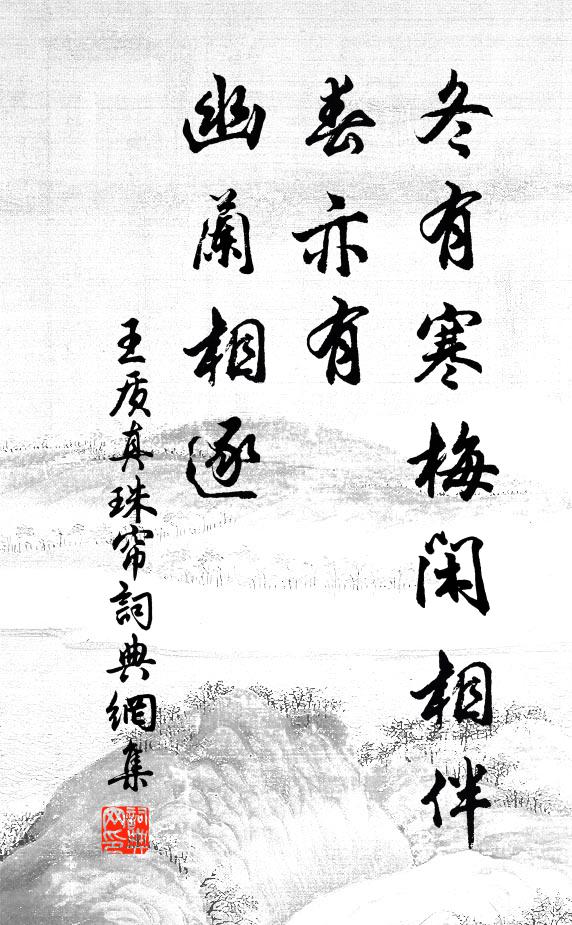 冬有寒梅闲相伴
春亦有
幽蘭相逐
王质真珠帘詞典網集